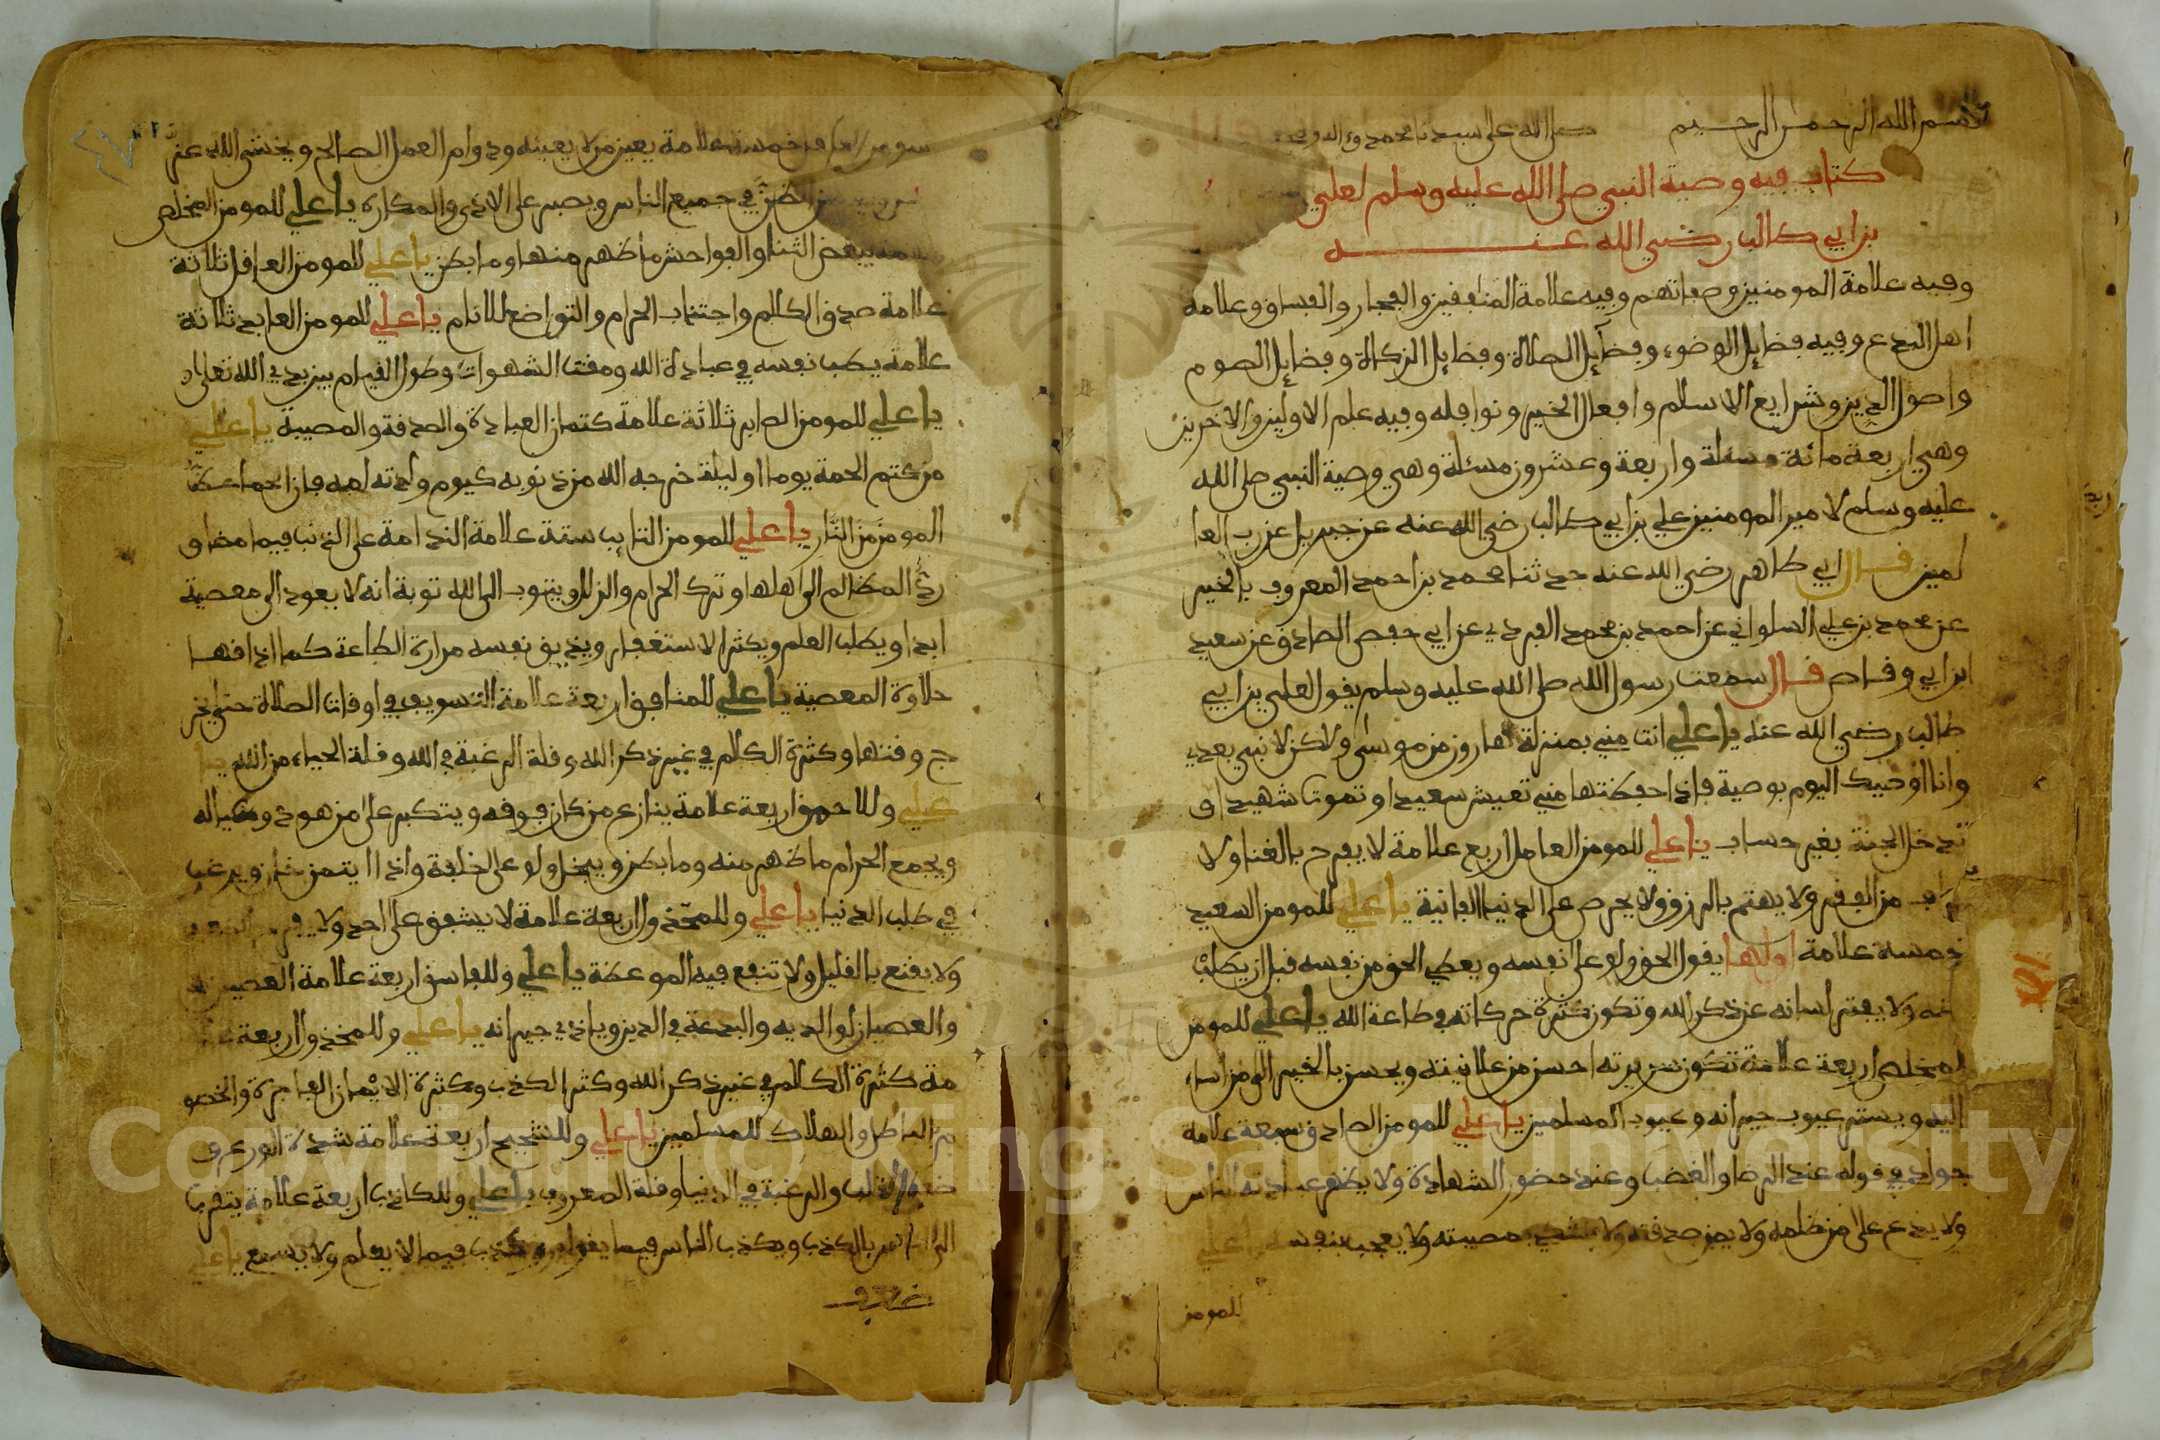 بسم الله الرحمن الرحيم صلى الله على سيدنا محمد وءاله
كتاب فيه وصية النبي صلى الله عليه وسلم لعلي
بن ابي طالب رضي الله عنه
وفيه علامة المومنين وصفاتهم وفيه علامة المنافقين والفجار والفساق وعلامة
اهل البدع وفيه فضايل الوضوء وفضآيل الصلاة وفضايل الزكاة وفضايل الصوم
واصول الدين وشرايع الاسلام وافعال الخير ونوافله وفيه علم الاولين والاخرين
وهي اربعة مائة مسئلة واربعة وعشرون مسئلة وهي وصية النبي صلى الله
عليه وسلم لامير المومنين علي بن ابي طالب رضي الله عنه عن جبريل عن رب العا
لمين قال ابي طاهر رضي الله عنه حدثنا محمد بن احمد المعروف بالخير
عن محمد بن علي السلواني عن احمد بن محمد البردي عن ابي حفص الصادق عن سعيد
ابن ابي وقاص قال سمعت رسول الله صلى الله عليه وسلم يقول لعلي بن ابي
طالب رضي الله عنه يا علي انت مني بمنزلة هارون من موسى ولاكن لا نبي بعدي
وانا اوصيك اليوم بوصية فاذا حفظتها مني تعيش سعيدا وتموت شهيدا و
تدخل الجنة بغير حساب يا علي للمومن العامل اربع علامة لا يفرح بالغنا ولا
من الفقر ولا يهتم بالرزق ولا يحرص على الدنيا الفانية يا علي للمومن السعيد
خمسة علامة اولها يقول الحق ولو على نفسه ويعطي الحق من نفسه قبل ان يطلب
منه ولا يفتر لسانه عن ذكر الله وتكون كثرة حركاته في طاعة الله يا علي للمومن
المخلص اربعة علامة تكون سريرته احسن من علانيته ويحسن بالخير الى من اساء
اليه ويستر عيوب جيرانه وعيوب المسلمين يا علي للمومن الصادق سبعة علامة
جواد في قوله عند الرضا والغضب وعند حضور الشهادة ولا يظهر عبادته للناس
ولا يدع على من ظلمه ولا يمن صدقته ولا يشتكي مصيبته ولا يعجب بنفسه يا علي
للمومن
خمسة علامة يعين من لا يعينه ودوام العمل الصالح ويخشى الله عز
الظن في جميع الناس ويصبر على الاذى والمكاره يا علي للمومن المخلص
يبغض الثنا والفواحش ما ظهر منها وما بطن يا علي للمومن العاقل ثلاثة
علامة صدق الكلام واجتناب الحرام والتواضع للانام يا علي للمومن العابد ثلاثة
علامة يطب نفسه في عبادة الله ومقت الشهوات وطول القيام بين يدي الله تعلى
يا علي للمومن الصابر ثلاثة علامة كتمان العبادة والصدقة والمصيبة يا علي
من كتم الحمة يوما او ليلة خرجه الله من ذنوبه كيوم ولدته امه فان الحما حظ
المومن من النار يا علي للمومن التايب ستة علامة الندامة على الذنب فيما مضا و
رد المظالم الى اهلها وترك الحرام والزلل ويتوب الى الله توبة انه لا يعود الى معصية
ابدا ويطلب العلم ويكثر الاستغفار ويذيق نفسه مرارة الطاعة كما اذاقها
حلاوة المعصية يا علي للمنافق اربعة علامة التسويف في اوقات الصلاة حتى يخر
ج وقتها وكثرة الكلام في غير ذكر الله وقلة الرغبة في الله وقلة الحياء من الله يا
علي وللاحمق اربعة علامة ينازع من كان فوقه ويتكبر على من هو دونه
ويجمع الحرام ما ظهر منه وما بطن ويبخل ولو على خليفة واذا ايتمن خان ويرغب
في طلب الدنيا يا علي وللمخذول اربعة علامة لا يشفق على احد ولا
ولا يقنع بالقليل ولا تنفع فيه الموعظة يا علي وللفاسق اربعة علامة العصيان
والعصيان لوالديه والبدعة في الدين وياذي جيرانه يا علي وللمخذول اربعة علا
مة كثرة الكلام في غير ذكر الله وكثر الكذب وكثرة الايمان الفاجرة والخصو
الباطل والهلاك للمسلمين يا علي وللشحيح اربعة علامة شدة الورع و
الطلب والرغبة في الدنيا وقلة المعروف يا علي وللكاذب اربعة علامة يتقرب
الى الناس بالكذب ويكذب الناس فيما يقولون ويكذب فيما لا يعلم ولا يسمع يا علي